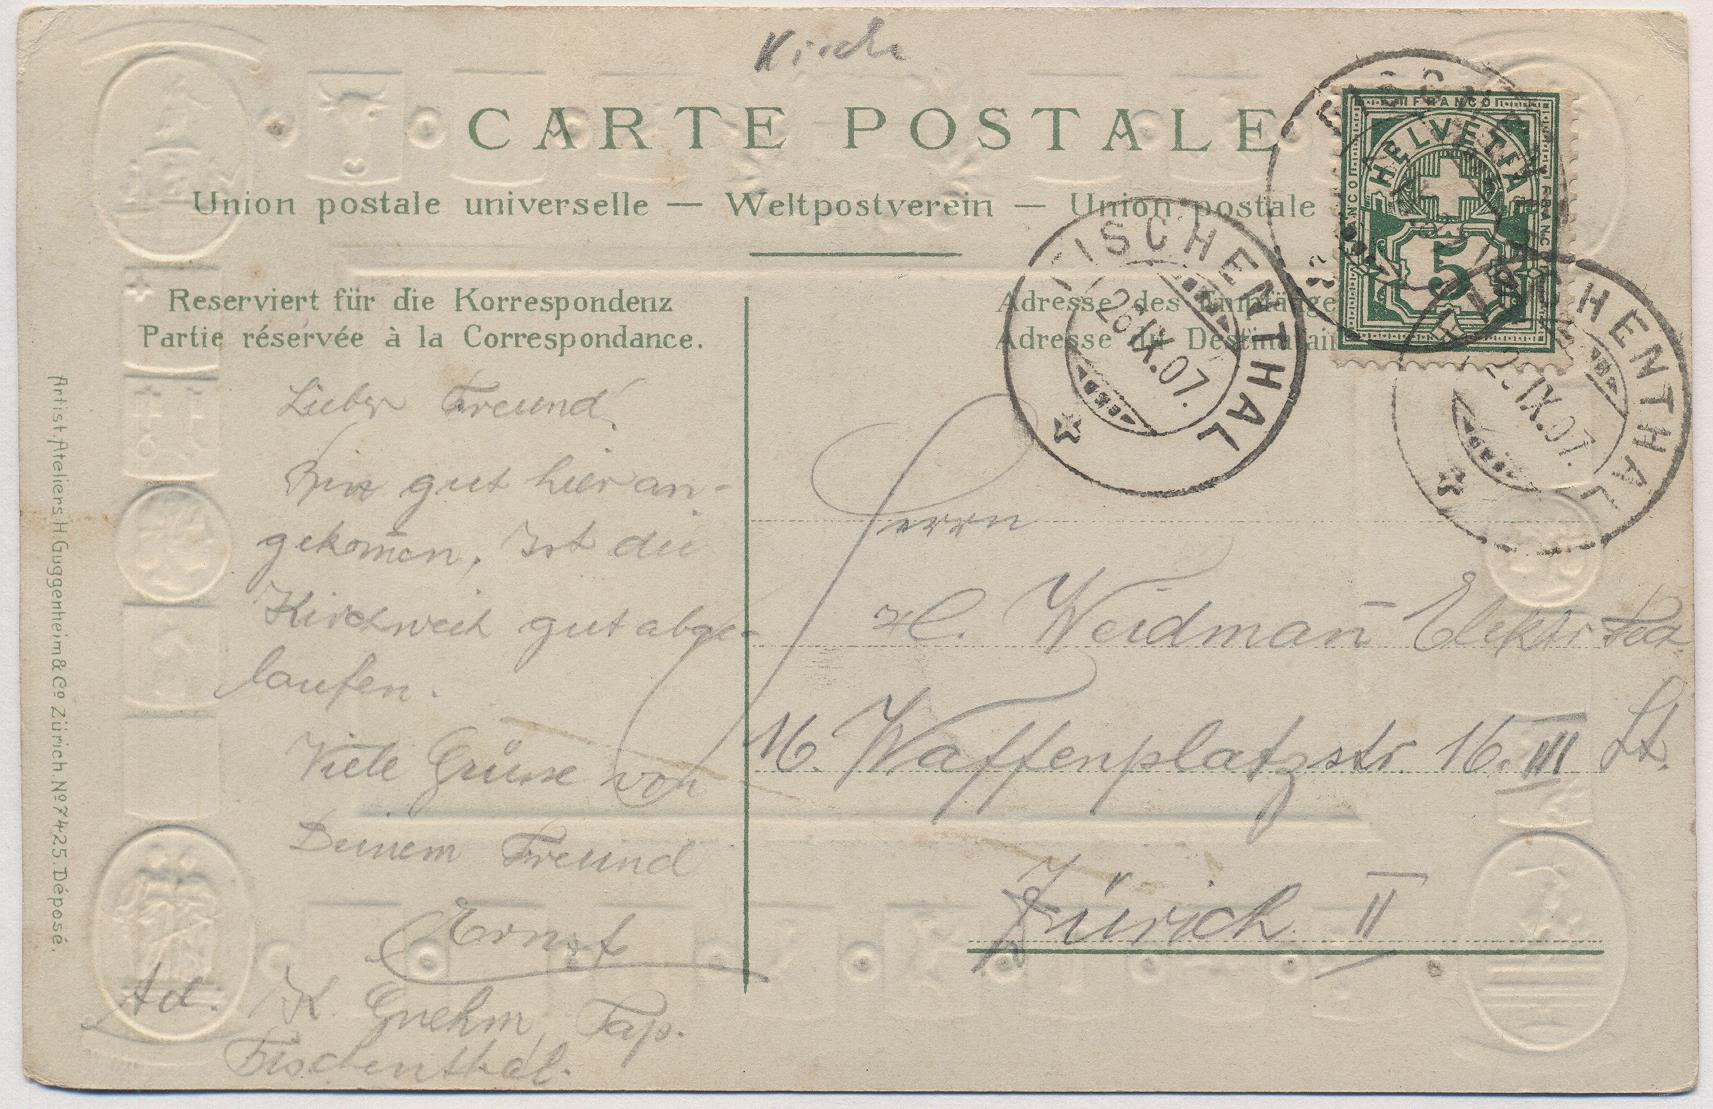 Kirche
CARTE POSTALE
Union postale universelle — Weltpostverein — Union postale
Reserviert für die Korrespondenz
Partie réservée à la Correspondance.
Adresse des Empfänge
Adresse du Destinatair
FRANCO
FRANCO
FRANCO
HELVETIA
5
FISCHENTHAL
26.IX.07.
FISCHENTHAL
26.IX.07.
Lieber Freund!
Bin gut hier an-
gekom̄en, Ist die
Kirchweih gut abge-
laufen.
Viele Grüsse von
Deinem Freund
Ernst
Ad. K. Gnehm, Tap.
Fischenthal.
Herrn
H. Weidman̄ Elektr
M. Waffenplatzstr. 16. III St.
Zürich II
Artist. Ateliers H. Guggenheim & Co Zürich. No 7425. Déposé.